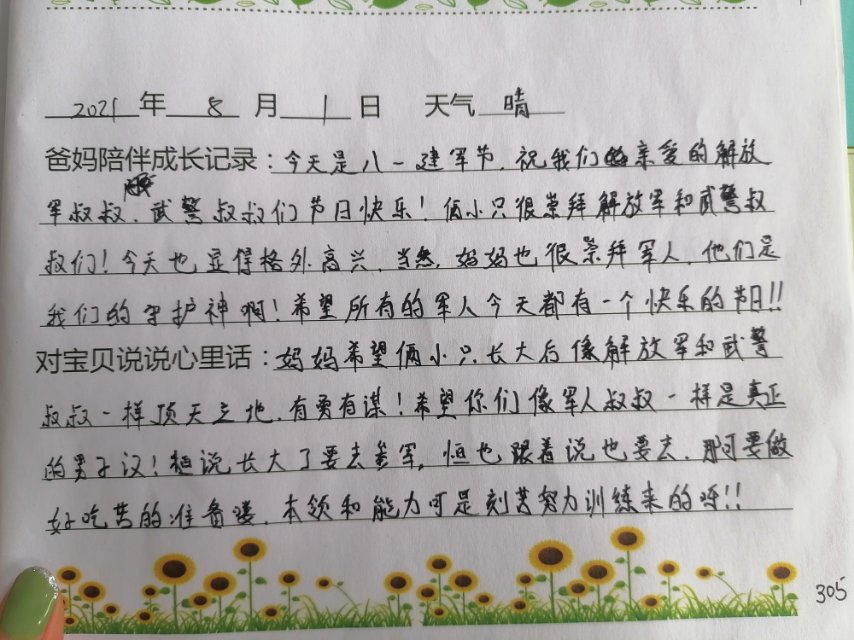 2021年 8 月 1 日 天气 晴
爸妈陪伴成长记录：今天是八一建军节，祝我们亲爱的解放
军叔叔、武警叔叔们节日快乐！俩小只很崇拜解放军和武警叔
叔们！今天也显得格外高兴，当然，妈妈也很崇拜军人，他们是
我们的守护神啊！希望所有的军人今天都有一个快乐的节日!!
对宝贝说说心里话：妈妈希望俩小只长大后像解放军和武警
叔叔一样顶天立地，有勇有谋！希望你们像军人叔叔一样是真正
的男子汉！说长大了要去参军，恒也跟着说也要去，那可要做
好吃苦的准备喽，本领和能力可是刻苦努力训练来的呀!!
305